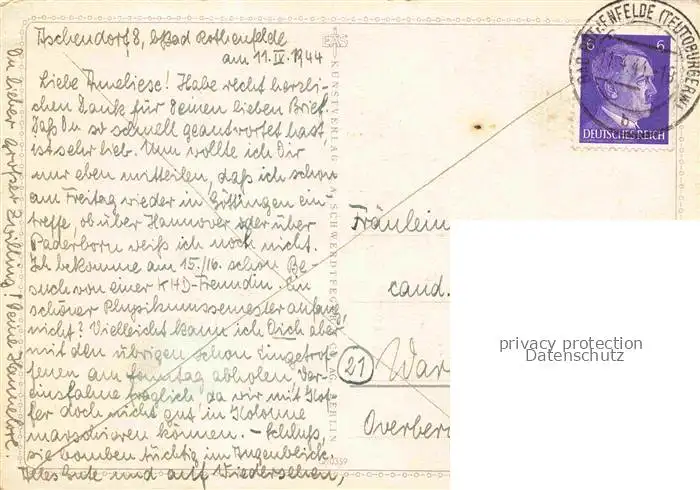 Aschendorf 8, b/Bad Rothenfelde
am 11. IV. 1944
Liebe Anneliese! Habe recht herzli-
chen Dank für Deinen lieben Brief.
Daß Du so schnell geantwortet hast
ist sehr lieb. Nun wollte ich Dir
nur eben mitteilen, daß ich schon
am Freitag wieder in Göttingen ein-
treffe, ob über Hannover oder über
Paderborn weiß ich noch nicht.
Ich bekomme am 15./16. schon Be-
such von einer KHD-Freundin. Ein
schöner Physikumssemesteranfang,
nicht? Vielleicht kann ich Dich aber
mit den übrigen schon Eingetrof-
fenen am Sonntag abholen, Dar-
fraglich, da wir mit Kof-
fer doch nicht gut in Kolonne
marschieren können. – Schluß,
sie bomben tüchtig im Augenblick.
Alles Gute und auf Wiedersehen,
Du lieber großer Zwilling! Deine Hannelore.
KUNSTVERLAG A. SCHWERDTFEGER & CO. AG. BERLIN
0359
BAD ROTHENFELDE (TEUTOBURGERW)
b
6 6
DEUTSCHES REICH
Fräulein
cand.
(21) War
Overber
privacy protection
Datenschutz